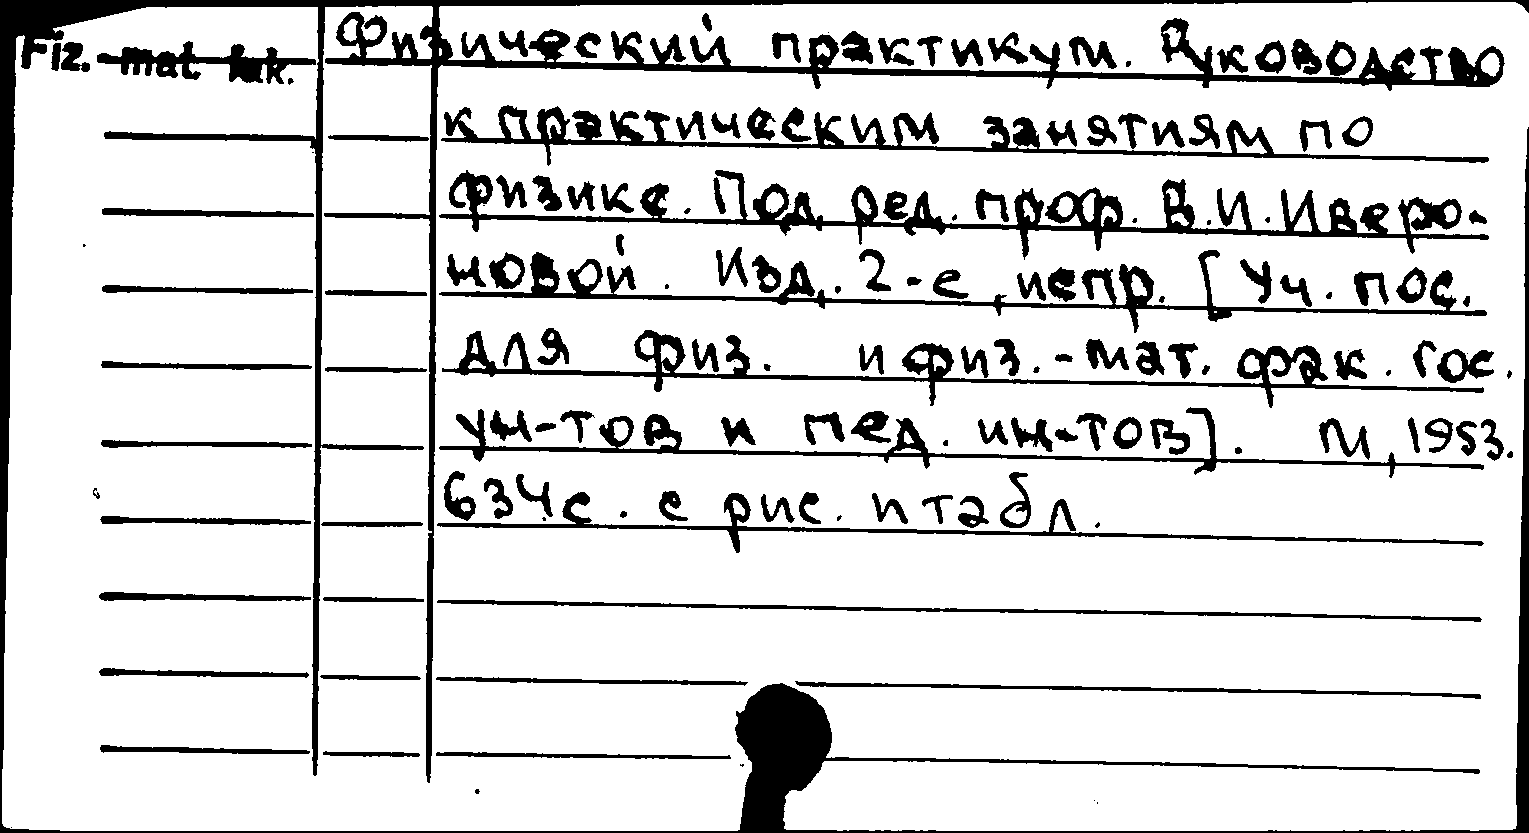 Fiz.-mat. fak.
Физический практикум. Руководство
к практическим занятиям по
физике. Под. ред. проф. В.И.Иверо-
новой. Изд. 2-е, испр. [Уч. пос.
для физ. и физ.-мат. фак. гос.
ун-тов и пед. ин-тов]. М, 1953.
634с. с рис. и табл.